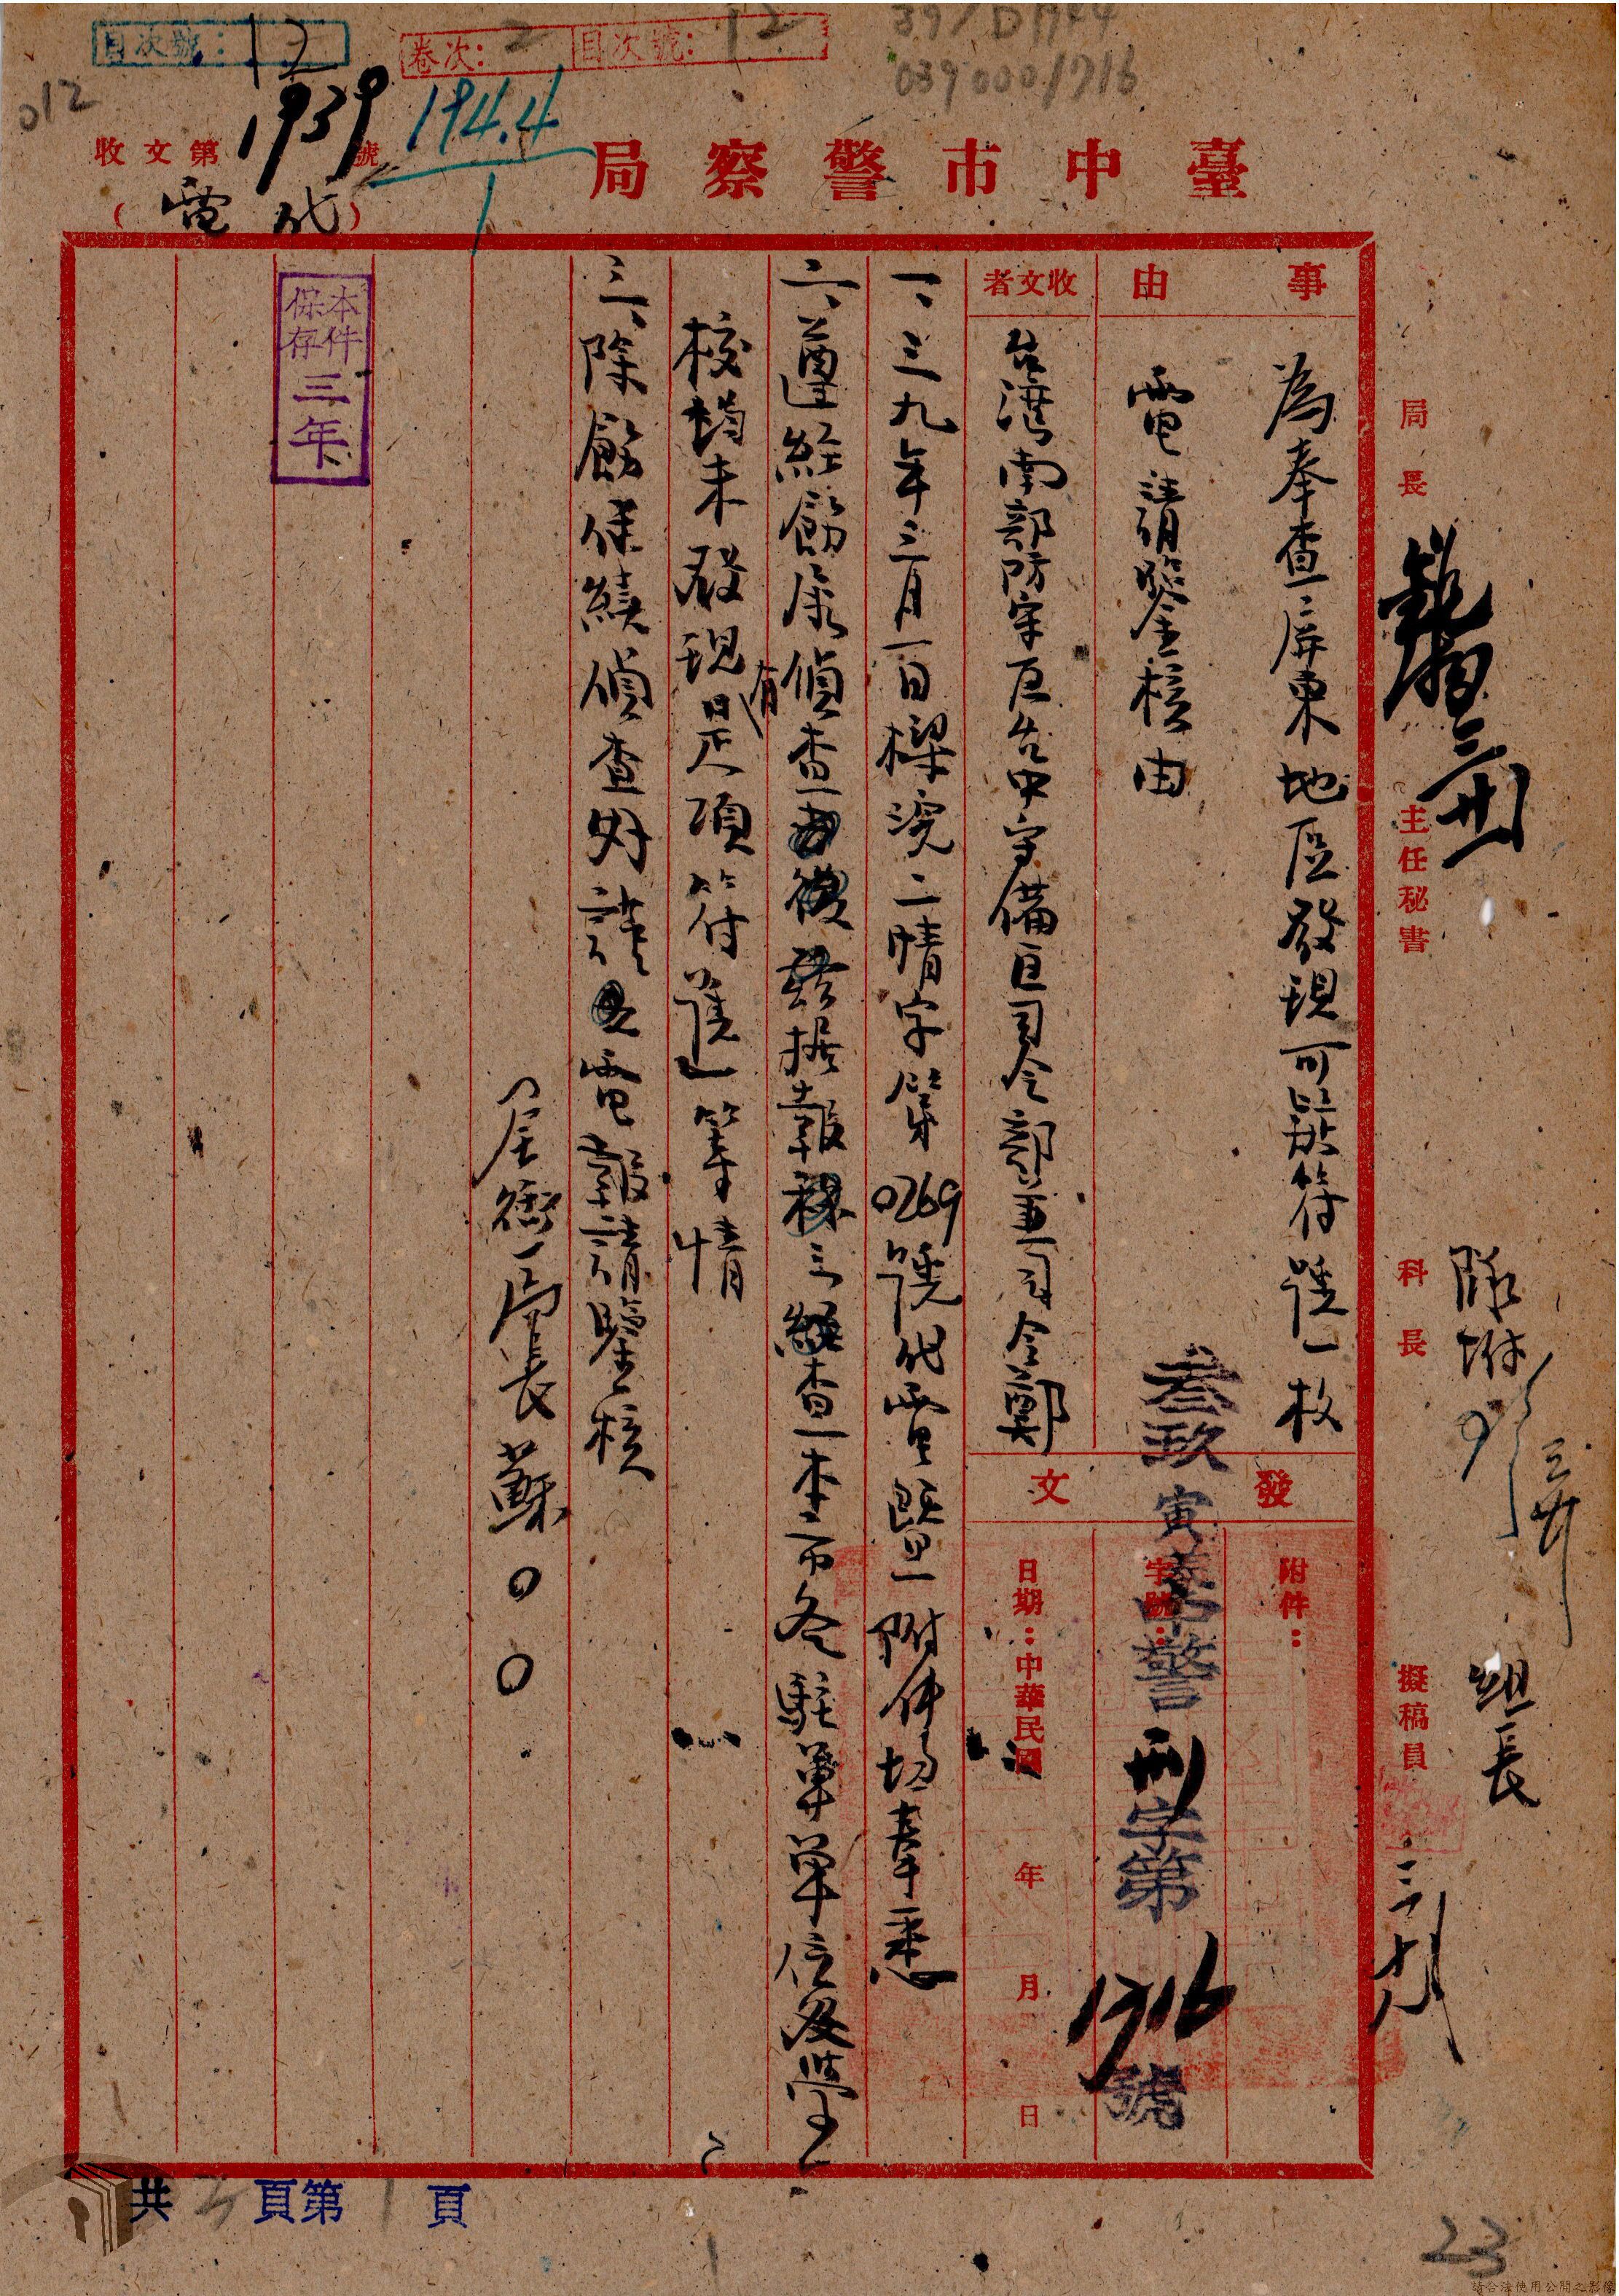 目次號：12
卷次：2 目次號：12
39/D1944
0390001716
012
收文第1939號
194.4
1
(代電)
臺中市警察局
事由
為奉查屏東地區發現可疑符號一枚
電請鑒核由
收文者
台灣南部防守區台中守備區司令部兼司令鄭
發文
附件：
字號：
叁玖寅 警刑字第1716號
日期：中華民國 年 月 日
一、三九年三月一日 二情字第0269號代電暨附件均奉悉
二、遵經飭屬偵查 後茲據報稱三經查本市各駐軍單位及學
校均未發現有是項符號等情
三、除飭保續偵查外謹電報請鑒核
全銜局長蘇○○
本件保存三年
局長
主任秘書
科長
隊附
擬稿員
組長
三 十八
共3頁第1頁
23
請合法使用公開之影像